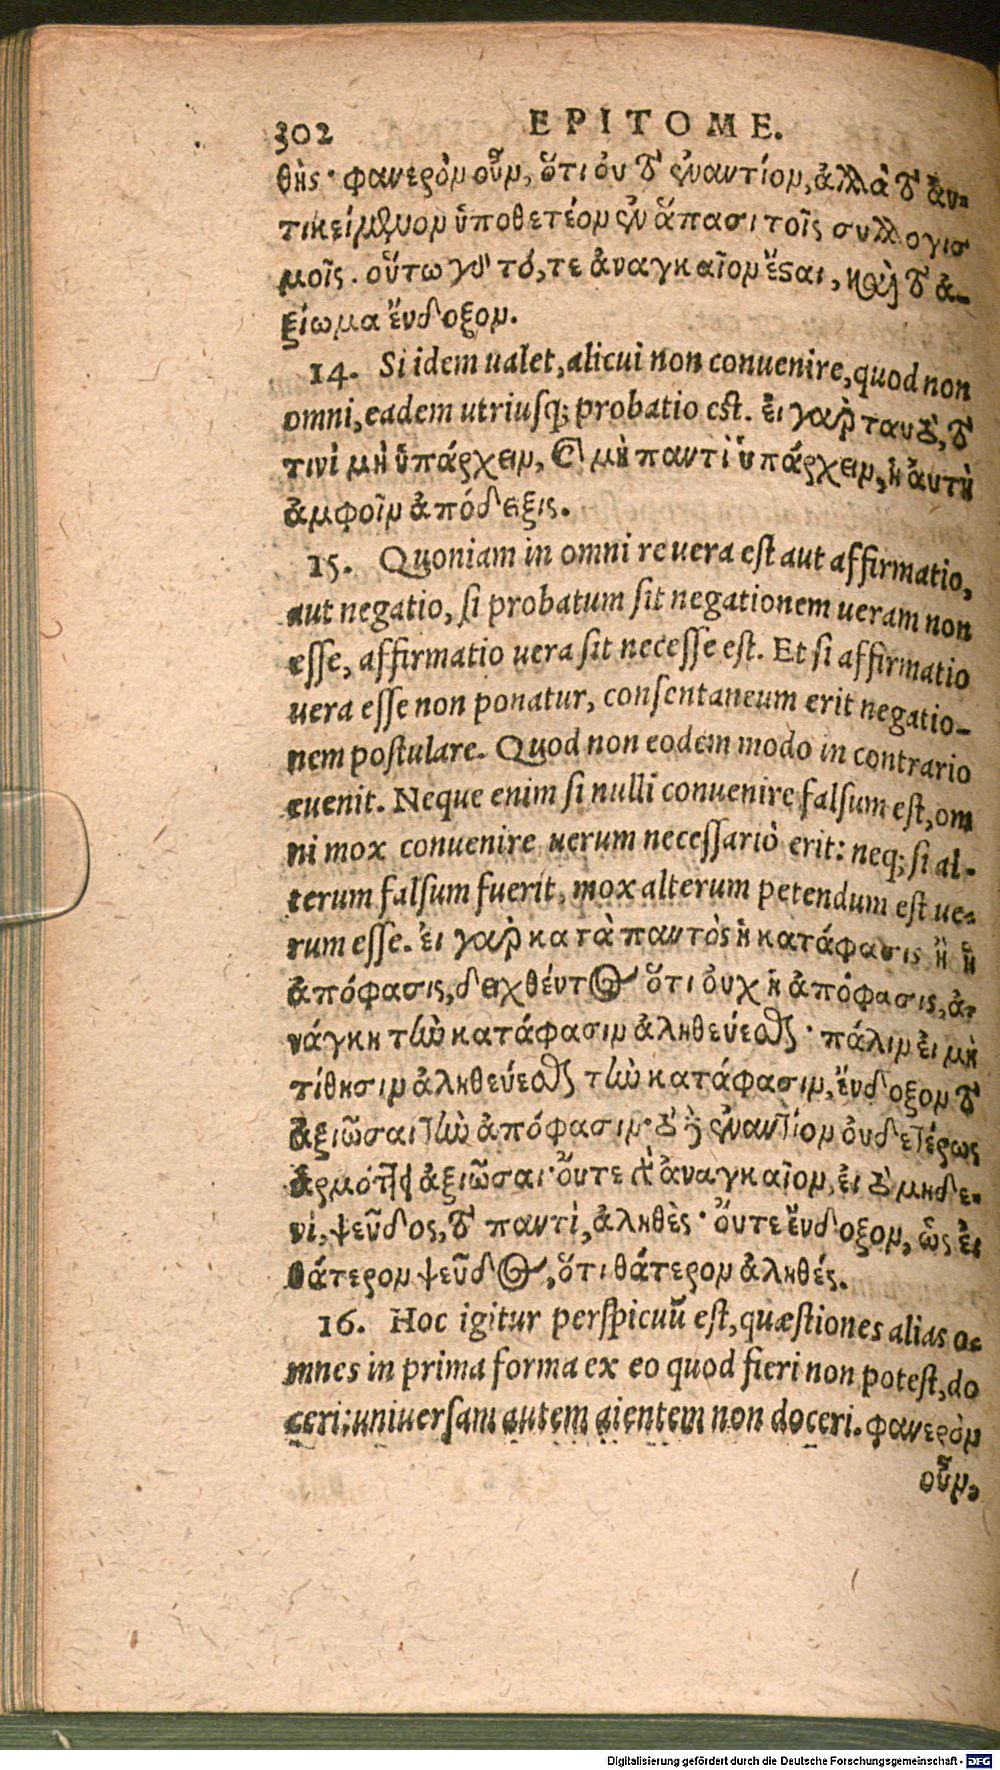 302 EPITOME.
θής· φανερὸν οὖν, ὅτι οὐ τὸ ἐναντίον, ἀλλὰ τὸ ἀν-
τικείμενον ὑποθετέον ἐν ἅπασι τοῖς συλλογισ
μοῖς. οὕτω γὰρ τό, τε ἀναγκαῖον ἔσαι, καὶ τὸ ἀ-
ξίωμα ἔνδοξον.
14. Si idem ualet, alicui non conuenire, quod non
omni, eadem utriusq; probatio est. εἰ γὰρ ταυτὸ, τὸ
τινὶ μὴ ὑπάρχειν, καὶ μὴ παντὶ ὑπάρχειν, ἡ αὐτὴ
ἀμφοῖν ἀπόδειξις.
15. Quoniam in omni re uera est aut affirmatio,
aut negatio, si probatum sit negationem ueram non
esse, affirmatio uera sit necesse est. Et si affirmatio
uera esse non ponatur, consentaneum erit negatio-
nem postulare. Quod non eodem modo in contrario
euenit. Neque enim si nulli conuenire falsum est, om
ni mox conuenire uerum necessariò erit: neq; si al-
terum falsum fuerit, mox alterum petendum est ue-
rum esse. εἰ γὰρ κατὰ παντὸς ἡ κατάφασις ἢ ἡ
ἀπόφασις, δειχθέντος ὅτι οὐχ ἡ ἀπόφασις, ἀ-
νάγκη τὴν κατάφασιν ἀληθεύεσθαι· πάλιν εἰ μὴ
τίθησιν ἀληθεύεσθαι τὴν κατάφασιν, ἔνδοξον τὸ
ἀξιῶσαι τὴν ἀπόφασιν· τὸ δὲ ἐναντίον οὐδετέρως
ἁρμόττει ἀξιῶσαι· οὔτε γὰρ ἀναγκαῖον, εἰ τὸ μηδε-
νὶ, ψεῦδος, τὸ παντὶ, ἀληθὲς· οὔτε ἔνδοξον, ὡς εἰ
θάτερον ψεῦδος, ὅτι θάτερον ἀληθές.
16. Hoc igitur perspicuũ est, quæstiones alias o-
mnes in prima forma ex eo quod fieri non potest, do
ceri: uniuersam autem aientem non doceri. φανερὸν
οὖν,
Digitalisierung gefördert durch die Deutsche Forschungsgemeinschaft - DFG